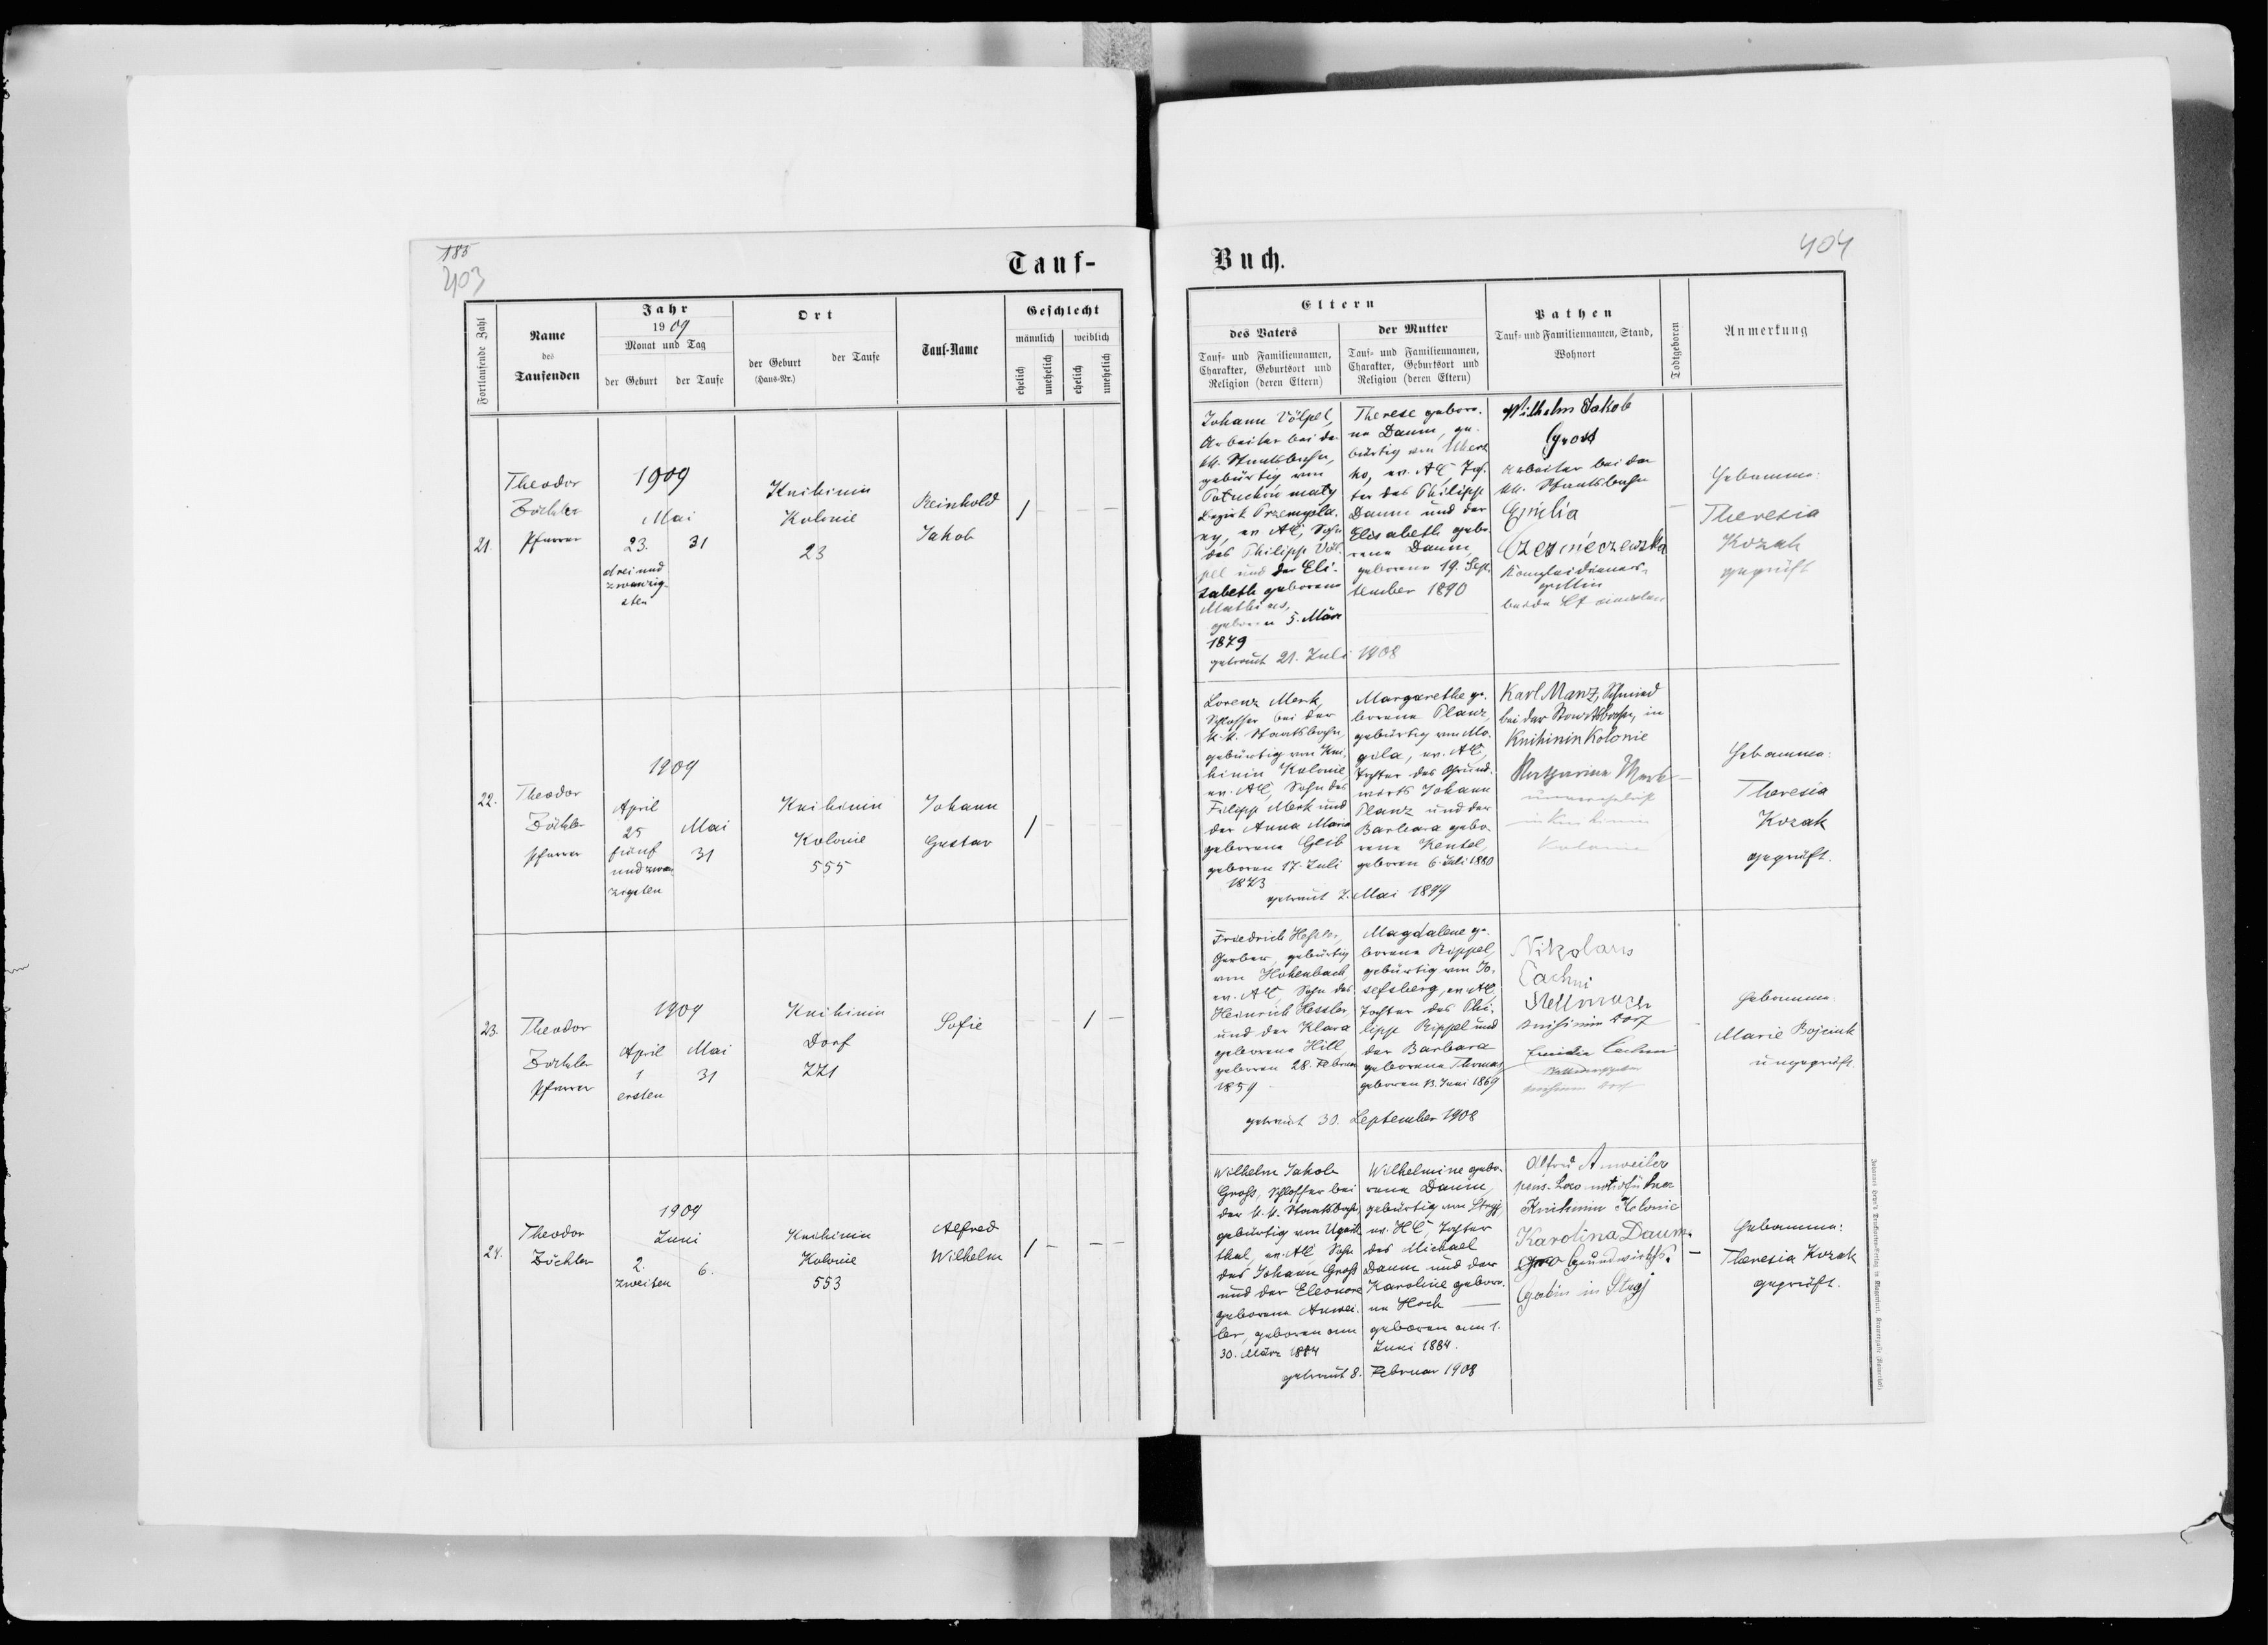 185
403
Tauf-
Fortlaufende Zahl
Name
des
Taufenden
Jahr
1909
Monat und Tag
der Geburt
der Taufe
Ort
der Geburt
(Haus-Nr.)
der Taufe
Tauf-Name
Geschlecht
männlich
weiblich
ehelich
unehelich
ehelich
unehelich
21.
Theodor
Zöckler
Pfarrer
1909
Mai
23.
drei und
zwanzig-
sten
31
Knihinin
Kolonie
23
Reinhold
Jakob
1 - - -
22.
Theodor
Zöckler
Pfarrer
1909
April
25
fünf
und zwan
zigsten
Mai
31
Knihinin
Kolonie
555
Johann
Gustav
1 - - -
23.
Theodor
Zöckler
Pfarrer
1909
April
1
ersten
Mai
31
Knihinin
Dorf
221
Sofie
- - 1 -
24.
Theodor
Zöckler
1909
Juni
2.
zweiten
6.
Knihinin
Kolonie
553
Alfred
Wilhelm
1 - - -
Buch.
404
Eltern
des Vaters
Tauf- und Familiennamen,
Charakter, Geburtsort und
Religion (deren Eltern)
der Mutter
Tauf- und Familiennamen,
Charakter, Geburtsort und
Religion (deren Eltern)
Pathen
Tauf- und Familiennamen, Stand,
Wohnort
Todtgeboren
Anmerkung
Johann Völpel,
Arbeiter bei der
kk. Staatsbahn,
gebürtig von
maty
Bezirk Przemysla-
ny, ev. AC, Sohn
des Philipp Völ-
pel und der Eli-
sabeth geborene
Mathias,
geboren 5. März
1879
getraut 21. Juli 1908
Therese gebore-
ne Daum, ge-
bürtig von
ev. AC, Toch-
ter des Philipp
Daum und der
Elisabeth gebo-
rene Daum,
geboren 19. Sep-
tember 1890
Wilhelm Jakob
Gross
Arbeiter bei der
kk. Staatsbahn
Emilia
Kanzleidieners-
gattin
beide
-
Hebamme:
Theresia
Kozak
geprüft
Lorenz Merk,
Schlosser bei der
k.k. Staatsbahn,
gebürtig von Kni-
hinin Kolonie,
ev. AC, Sohn des
Filipp Merk und
der Anna Maria
geborene Geib
geboren 17. Juli
1873
getraut 7. Mai 1899
Margarethe ge-
borene Manz,
gebürtig von Mo-
gila, ev. AC,
Tochter des Grund-
wirts Johann
Manz und der
Barbara gebo-
rene Kentel,
geboren 6. Juli 1880
Karl Manz, Schmied
bei der Staatsbahn, in
Knihinin Kolonie
Katharina Merk
in Knihinin
Kolonie
-
Hebamme:
Theresia
Kozak
geprüft.
Friedrich Hessler,
Gerber, gebürtig
von Hohenbach,
ev. AC, Sohn des
Heinrich Hessler,
und der Klara
geborene Hill,
geboren 28. Februar
1859
getraut 30. September 1908
Magdalene ge-
borene Rippel,
gebürtig von Jo-
sefsberg, ev. AC,
Tochter des Phi-
lipp Rippel und
der Barbara
geborene Thomas
geboren 13. Juni 1869
Nikolaus
Cachni
Stellmach
Knihinin Dorf
Cachni
Knihinin Dorf
-
Hebamme:
Marie Bojciuk
ungeprüft.
Wilhelm Jakob
Groß, Schlosser bei
der k.k. Staatsbahn,
gebürtig von Ugarts-
thal, ev. AC Sohn
des Johann Groß
und der Eleonore
geborene Anwei-
ler, geboren am
30. März 1884
getraut 8. Februar 1908
Wilhelmine gebo-
rene Daum,
gebürtig von Stryj,
ev. HC, Tochter
des Michael
Daum und der
Karoline gebore-
ne Hoch
geboren am 1.
Juni 1884.
Alfred Anweiler
pens. Locomotivführer
Knihinin Kolonie
Karolina Daum
Grundwirths-
Gatin in Stryj
-
Hebamme:
Theresia Kozak
geprüft.